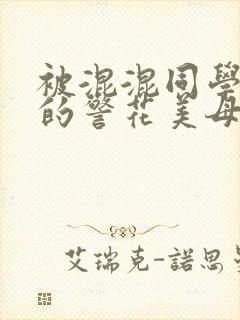 被混混同學
的警花美母
艾瑞克-諾思